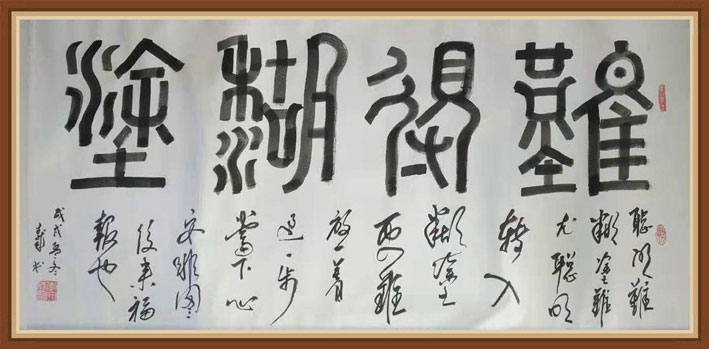 難得糊塗
聪明難
糊塗難
尤聪明
轉入
糊塗
而難
放一着
退一步
當下心
安非圖
後来福
報也
戊戌年冬
书